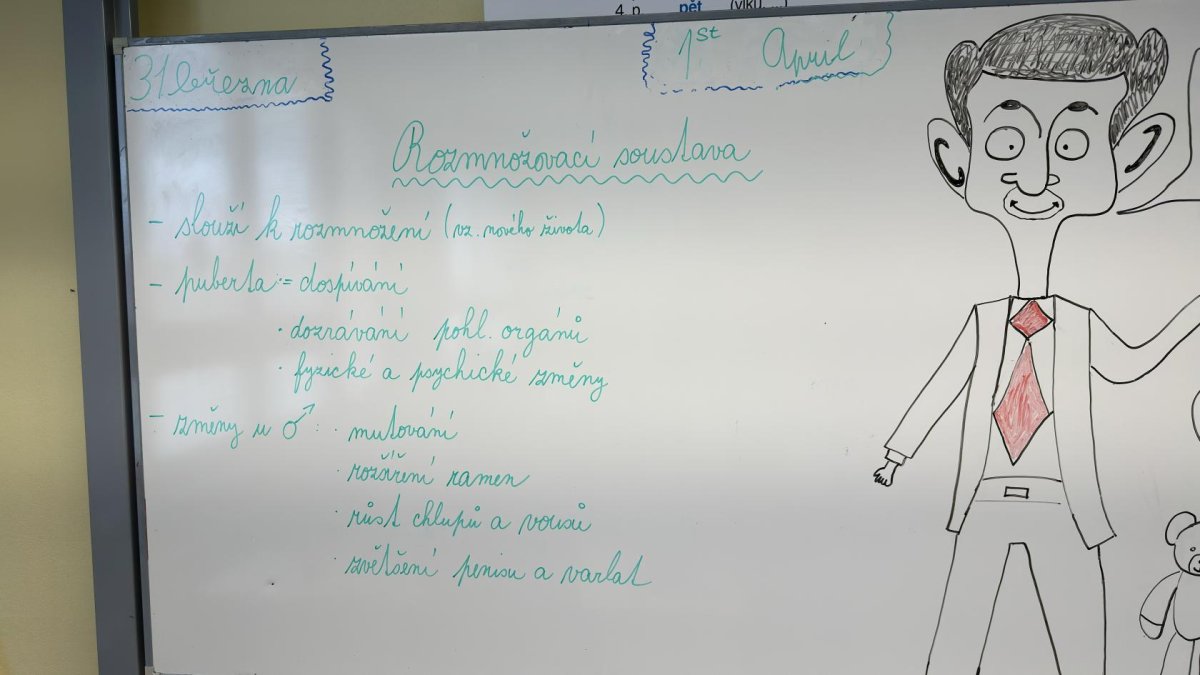 4. p. pět (vlků,....)
31 března
1st April
Rozmnožovací soustava
- slouží k rozmnožení (vz. nového života)
- puberta := dospívání
· dozrávání pohl. orgánů
· fyzické a psychické změny
- změny u ♂: · mutování
· rozšíření ramen
· růst chlupů a vousů
· zvětšení penisu a varlat